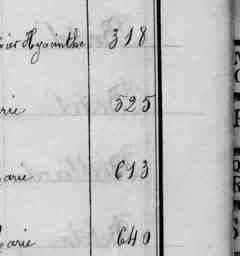 Hyacinthe 318
rie 525
arie 613
arie 640